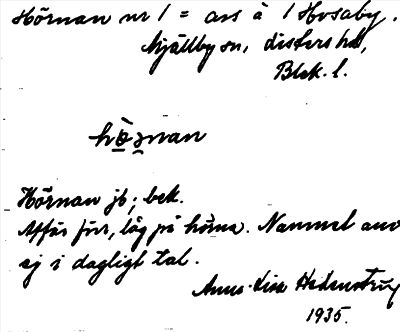 Hörnan nr 1 = avs å 1 Hosaby.
Mjällby sn, Listers hd,
Blek. l.
Hörnan jb; bek.
Affär förr, låg på hörna. Namnet anv
ej i dagligt tal.
Anna-Lisa Hedenstrug
1935.